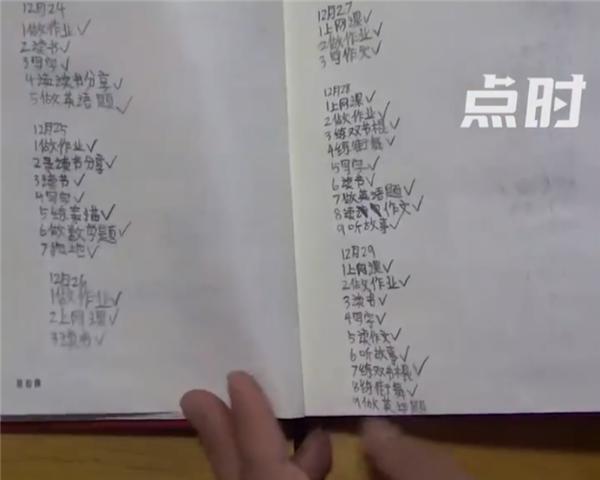 12月24
1做作业✓
2读书✓
3写字✓
4读书分享✓
5做英语题✓
12月25
1做作业✓
2录读书分享✓
3读书✓
4写字✓
5练素描✓
6做数学题✓
7拖地✓
12月26
1做作业✓
2上网课✓
3读书✓
12月27
1上网课✓
2做作业✓
3写作文✓
12月28
1上网课✓
2做作业✓
3练双节棍✓
4练街舞✓
5写字✓
6读书✓
7做英语题✓
8读作文✓
9听故事✓
12月29
1上网课✓
2做作业✓
3读书✓
4写字✓
5读作文✓
6听故事✓
7练双节棍✓
8练街舞✓
9做英语题
点时